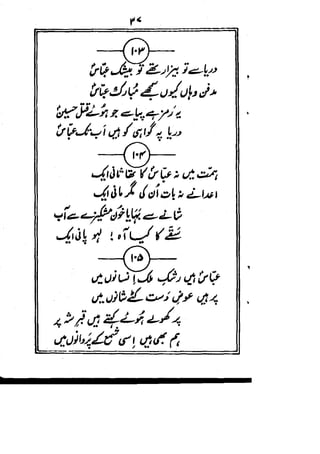 ۳۷
۱۰۳
دریا سے تو بیزار تھے تو بیشک عباسؑ
مدفن وہاں کیوں سمجھے مبارک عباسؑ
یہ رمز ہے پیاسے جو ہوئے قتل حسینؑ
دریا پہ گواہی کو ہیں اب تک عباسؑ
۱۰۴
ہمت میں نہ عباسؑ کا تھا ثانی ایک
اعدا نے نہ بات اُن کی مگر مانی ایک
شانے سے بہایا خون مشکیزے سے آب
سقے کا کیا آہ! لہو پانی ایک
۱۰۵
عباسؑ ہیں رشک ملک انسانوں میں
پر ہیں عوض دست کٹے شانوں میں
پر کھولے ہوئے کہتے ہیں قبر شہ پر
ہم بھی ہیں اسی شمع کے پروانوں میں